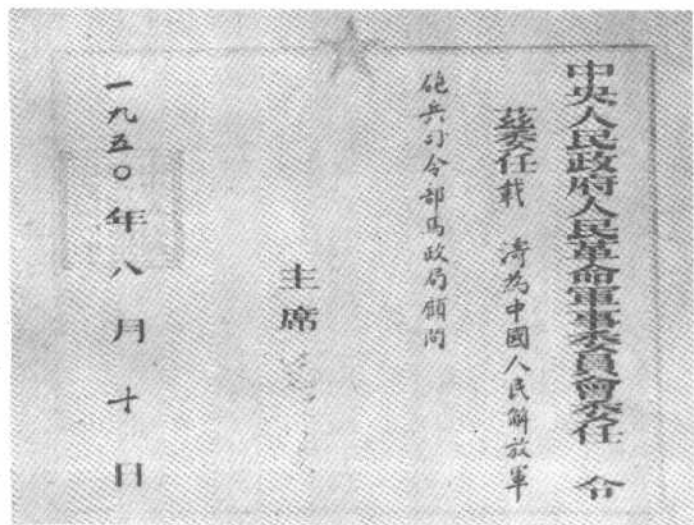 中央人民政府人民革命軍事委員會委任 令
茲委任載 濤為中國人民解放軍
砲兵司令部馬政局顧問
主席
一九五〇年八月十日